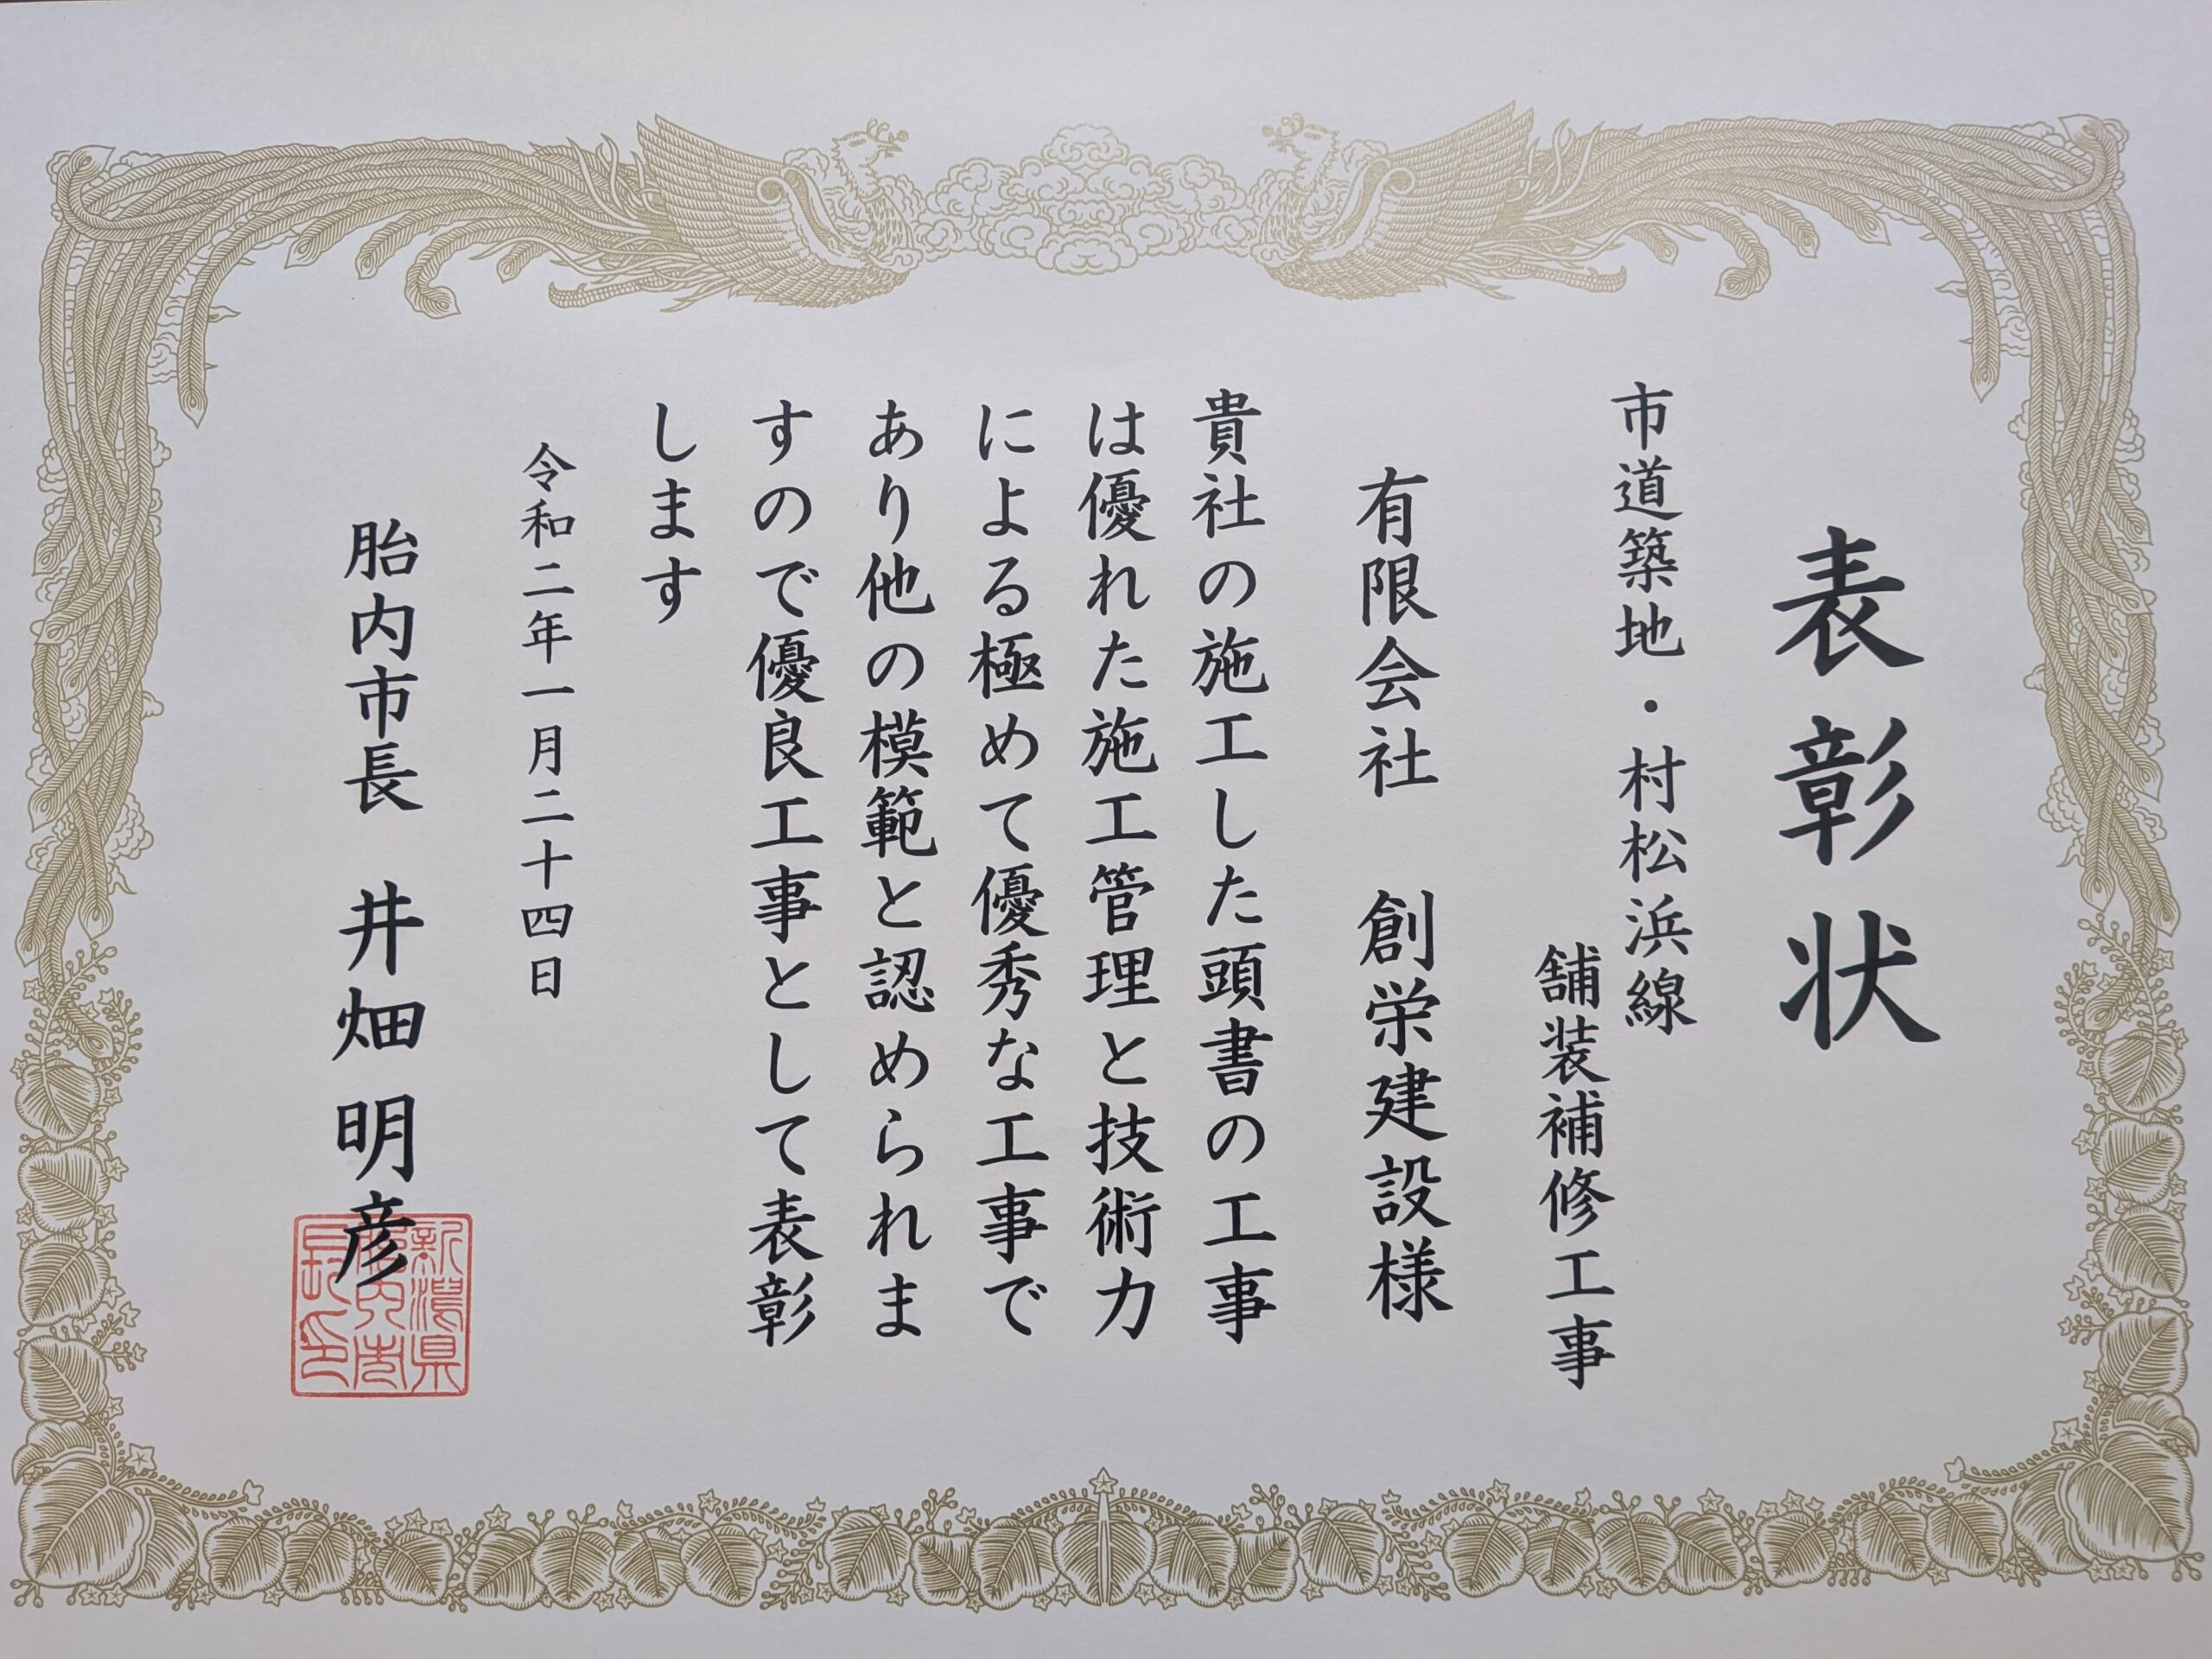 表彰状
市道築地・村松浜線
舗装補修工事
有限会社　創栄建設様
貴社の施工した頭書の工事
は優れた施工管理と技術力
による極めて優秀な工事で
あり他の模範と認められま
すので優良工事として表彰
します
令和二年一月二十四日
胎内市長　井畑明彦
新潟県
胎内市
長印